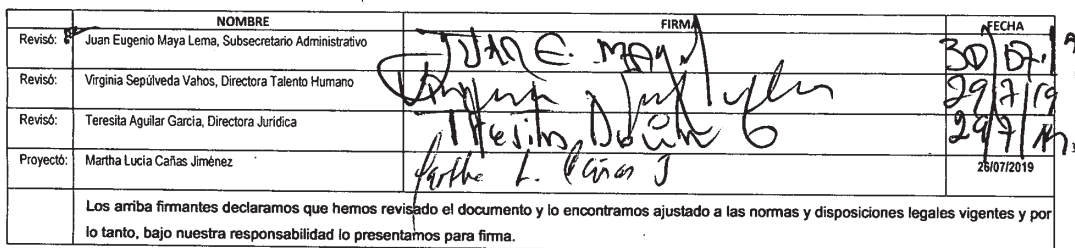 NOMBRE FIRMA FECHA
Revisó: Juan Eugenio Maya Lema, Subsecretario Administrativo JUAN E. MAYA 30/07/19
Revisó: Virginia Sepúlveda Vahos, Directora Talento Humano Virginia 29/7/19
Revisó: Teresita Aguilar García, Directora Jurídica Teresita 29/7/19
Proyectó: Martha Lucía Cañas Jiménez Martha L. Cañas J 26/07/2019
Los arriba firmantes declaramos que hemos revisado el documento y lo encontramos ajustado a las normas y disposiciones legales vigentes y por
lo tanto, bajo nuestra responsabilidad lo presentamos para firma.